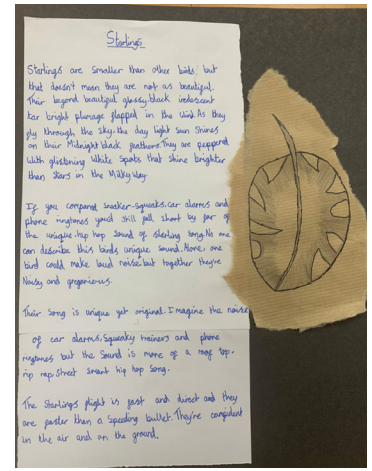 Starlings
Starlings are smaller than other birds, but
that doesn't mean they are not as beautiful.
Their beyond beautiful glossy, black iridescent
tar bright plumage flapped in the wind. As they
fly through the sky, the day light sun shines
on their Midnight black feathers. They are peppered
with glistening white spots that shine brighter
than stars in the Milky Way
If you compared sneaker-squeaks, car alarms and
phone ringtones you'd still fall short by far of
the unique, hip hop sound of sterling song. No one
can describe this birds unique sound. Alone, one
bird could make loud noise but together they're
Noisy and gregarious.
Their song is unique yet original. Imagine the noise
of car alarms, Squeaky trainers and phone
ringtones but the Sound is more of a roof top.
rip rap, street smart hip hop Song.
The Starlings flight is fast and direct and they
are faster than a Speeding bullet. They're confident
in the air and on the ground.